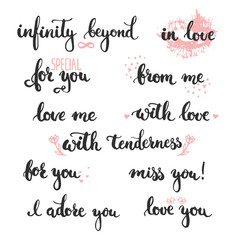 infinity beyond
in love
SPECIAL
for you
from me
love me
with love
with tenderness
for you
miss you!
I adore you
love you